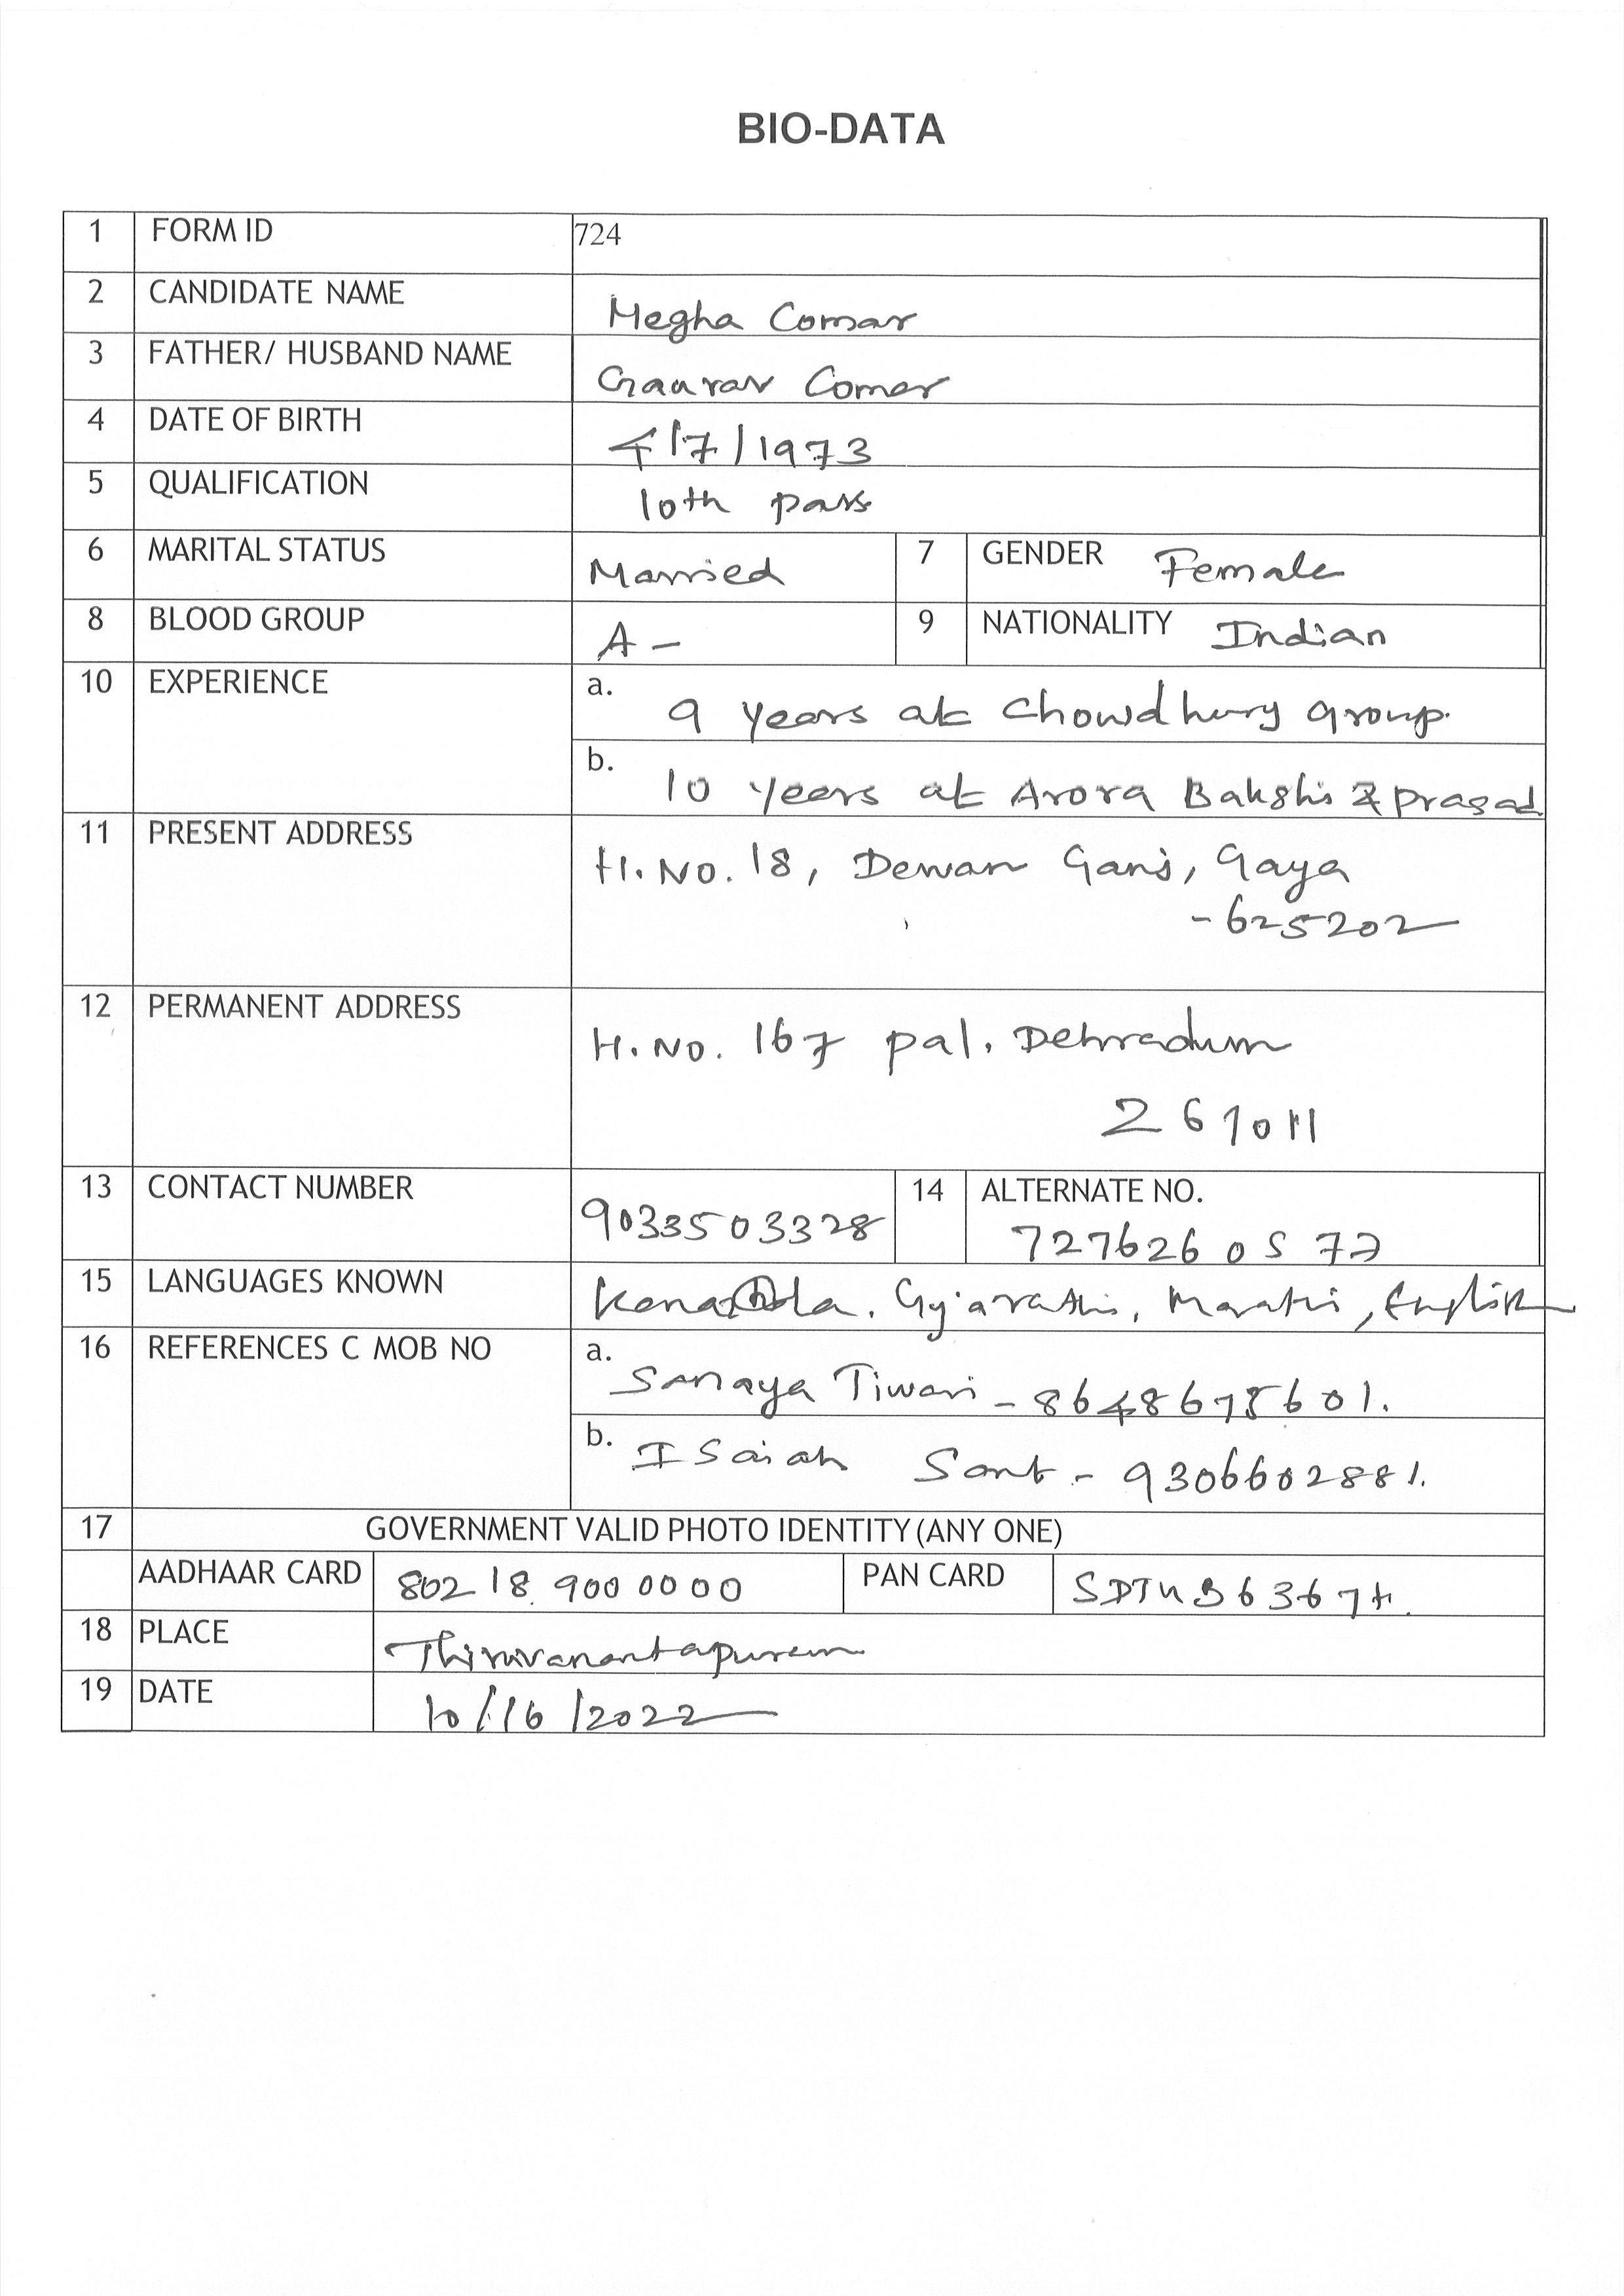 BIO-DATA
1 FORM ID 724
2 CANDIDATE NAME Megha Comar
3 FATHER/ HUSBAND NAME Gaurav Comar
4 DATE OF BIRTH 4/7/1973
5 QUALIFICATION 10th pass
6 MARITAL STATUS Married 7 GENDER Female
8 BLOOD GROUP A- 9 NATIONALITY Indian
10 EXPERIENCE a. 9 years at Chowdhury group.
b. 10 years at Arora Bakshi & prasad
11 PRESENT ADDRESS H.No. 18, Dewan Ganj, Gaya
-625202
12 PERMANENT ADDRESS H.No. 167 pal. Dehradum
261011
13 CONTACT NUMBER 9033503328 14 ALTERNATE NO.
7276260577
15 LANGUAGES KNOWN Gujarathi, Marathi, English
16 REFERENCES C MOB NO a. Samaya Tiwari - 8648675601.
b. Isaiah Sant - 9306602881.
17 GOVERNMENT VALID PHOTO IDENTITY (ANY ONE)
AADHAAR CARD 80218 900 0000 PAN CARD
18 PLACE Thiruvanantapuram
19 DATE 10/16/2022